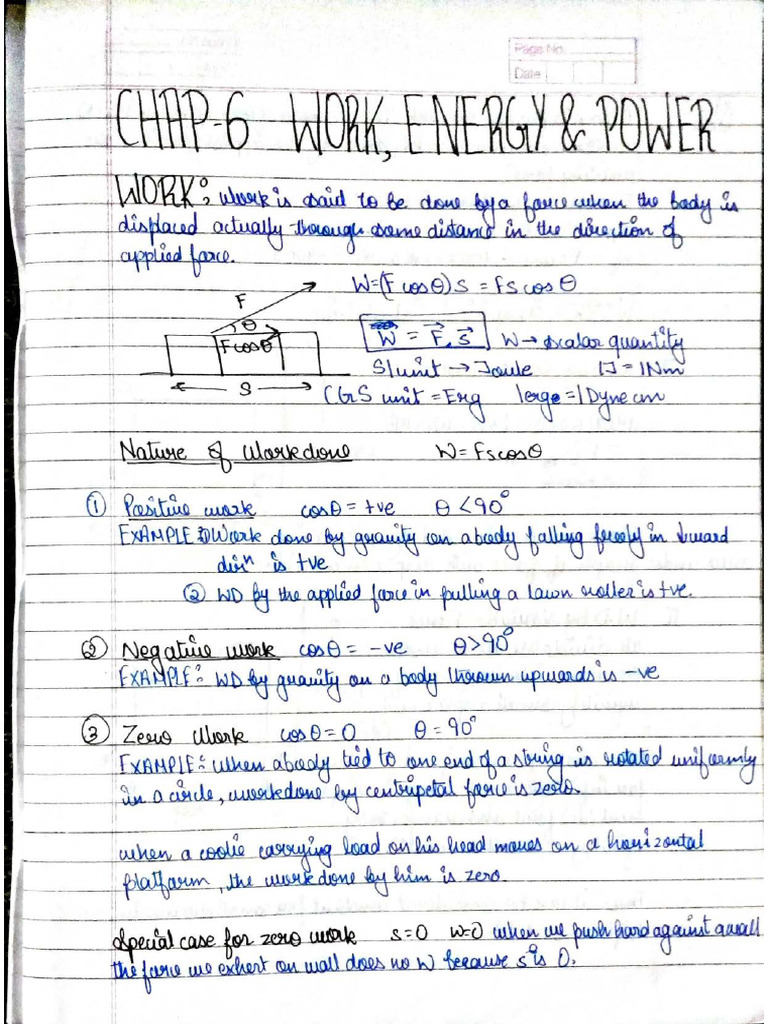 Page No.
Date
CHAP-6 WORK, ENERGY & POWER
WORK: Work is said to be done by a force when the body is
displaced actually through some distance in the direction of
applied force.
W=(F cosθ)S = FS cosθ
F
θ
Fcosθ
S
W = F⃗. S⃗ W → scalar quantity
SI unit → Joule 1J = 1Nm
CGS unit = Erg 1erg = 1Dyne cm
Nature of Workdone W= Fscosθ
① Positive work cosθ = +ve θ < 90°
EXAMPLE ① Work done by gravity on a body falling freely in ↓ward
dirⁿ is +ve
② WD by the applied force in pulling a lawn roller is +ve.
② Negative work cosθ = -ve θ>90°
EXAMPLE:- WD by gravity on a body thrown upwards is -ve
③ Zero Work cosθ=0 θ = 90°
EXAMPLE:- When a body tied to one end of a string is rotated uniformly
in a circle, workdone by centripetal force is zero.
when a coolie carrying load on his head moves on a horizontal
platfarm, the work done by him is zero.
Special case for zero work s=0 w=0 when we push hard against a wall
the force we exhert on wall does no W because s is 0.